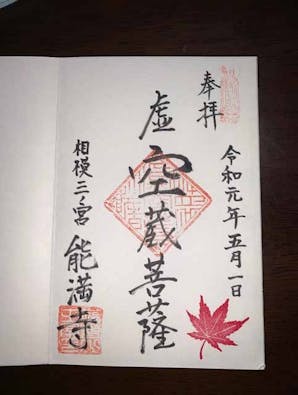 奉拝
令和元年五月一日
虚空蔵菩薩
相模三ノ宮
能満寺